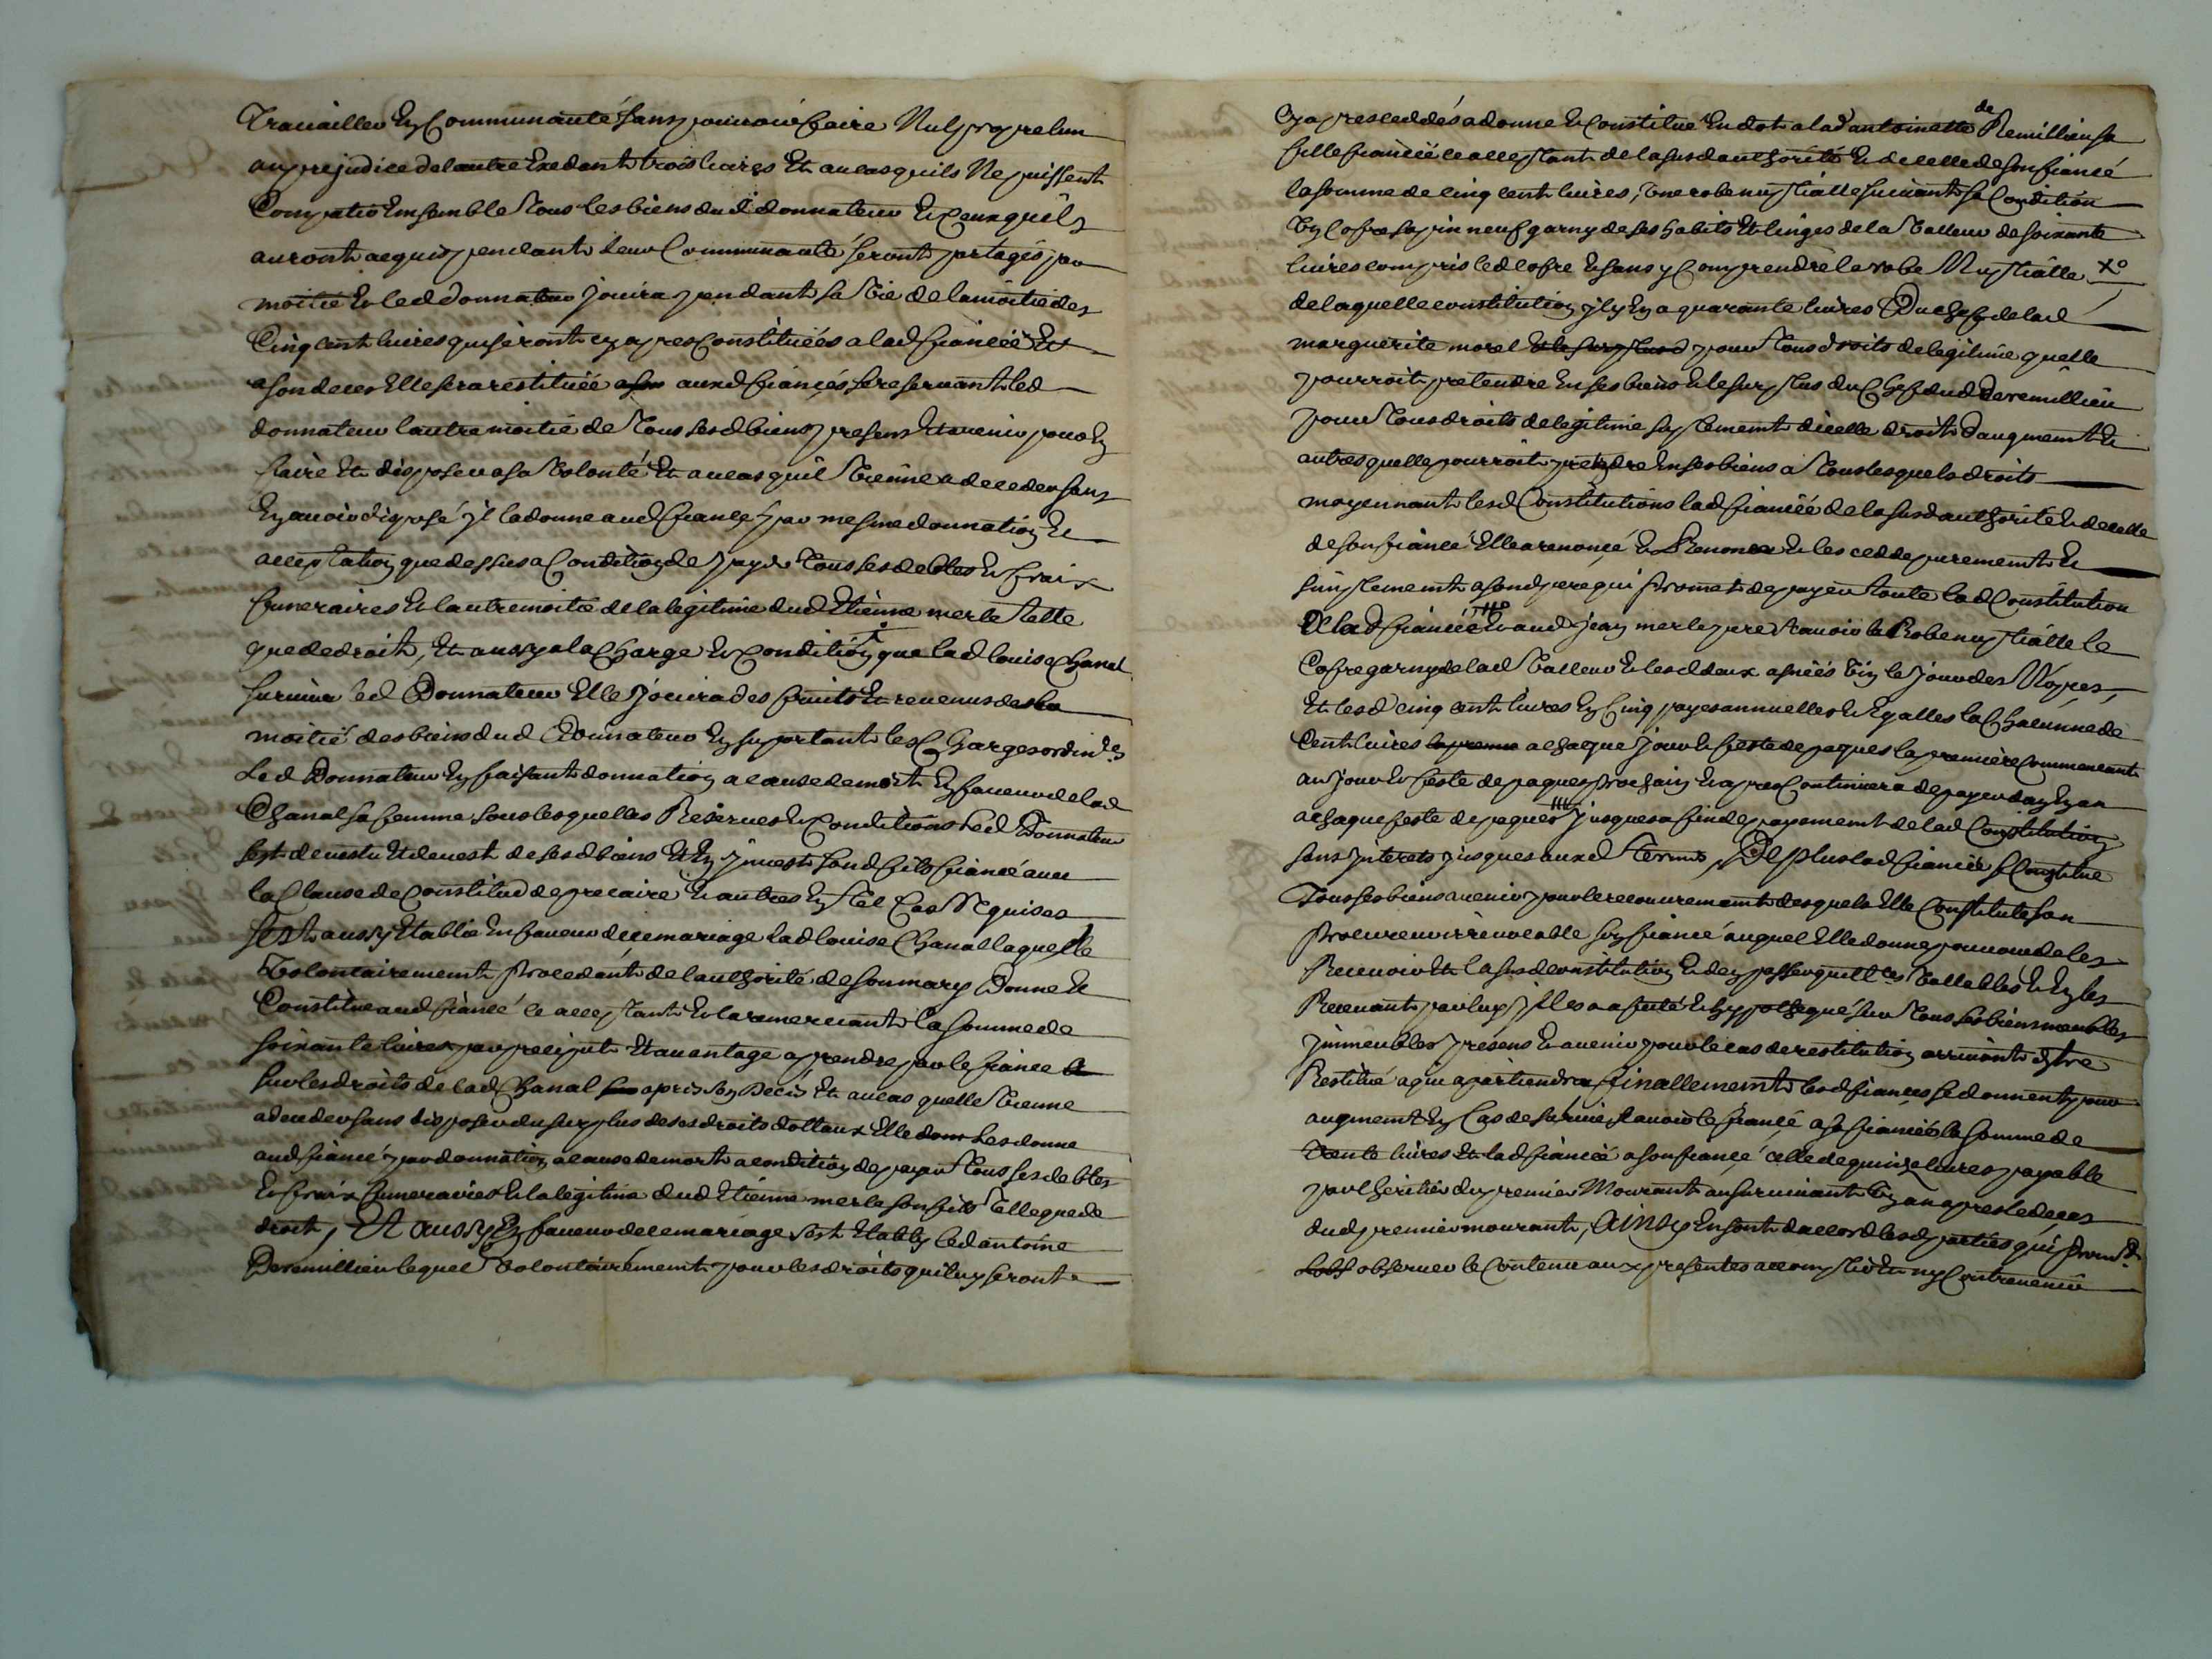 Travailler En Communauté sans pouvoir faire Nul propre lun
au prejudice de lautre Exedant trois livres Et au cas quils Ne puissent
Compatir Ensemble tous les biens dud donnateur Et Ceux quils
auront acquis pendant leur Communauté seront partagés par
moitié Et led donnateur jouira pendant sa Vie de la moitié des
Cinq cent livres qui seront cy apres Constituées a lad fiancée Et
a son deces Elle sera restituée auxd fiancés se reservant led
donnateur lautre moitié de tous sesd biens presens Et avenir pour En
faire Et disposer a sa Volonté Et au cas quil Vienne a deceder sans
En avoir disposé jl la donne aud fiancé par mesme donnation Et
acceptation que dessus a Condition de payer tous ses debtes Et fraix
funeraires Et lautre moitié de la legitime dud Etienne merle telle
que de droit, Et aussy a la Charge Et Condition que lad louise Chanal
survive led Donnateur Elle jouira des fruits Et revenus de la
moitié des biens dud Donnateur En suportant les Charges ordin.es
Led Donnateur En faisant donnation a cause de mort En faveur de lad
Chanal sa femme sous lesquelles Reserves Et Conditions led Donnateur
sest devestu Et devest de sesd biens Et En jnvest sond fils fiancé avec
la Clause de Constitud de precaire Et autres En tel Cas Requises
Sest aussy Etablie En faveur dece mariage lad louise Chanal laquelle
Volontairement procedant de lauthorité de son mary Donne Et
Constitue aud fiancé le acceptant Et la remerciant la somme de
soixante livres par preciput Et avantage a prendre par le fiancé
sur les droits de lad Chanal apres son Deces Et au cas quelle Vienne
a deceder sans disposer du surplus de ses droits dottaux Elle les donne
aud fiancé par donnation a cause de mort a condition de payer tous ses debtes
Et fraix funeraires Et la legitime dud Etienne merle son fils telle que de
droit, Et aussy En faveur de ce mariage sest Etably led antoine
Deremillieu lequel Volontairement pour les droits qui luy seront
Cy apres ceddés a donné Et Constitué En dot a lad antoinette de Remillieu sa
fille fiancée le acceptant de la susd authorité Et de celle de son fiancé
la somme de cinq cent livres, Une robe nuptialle suivant sa Condition
Un Cofre sapin neuf garny de ses habits Et linges de la Valleur de soixante
livres compris led cofre Et sans y Comprendre la robe Nuptialle X°
de laquelle constitution jl y En a quarante livres Du chef de lad
marguerite morel Et le surplus pour tous droits de legitime quelle
pourroit pretendre En ses biens Et le surplus du Chef dud Deremillieu
pour tous droits de legitime suplement dicelle droit daugment Et
autres quelle pourroit pretendre En ses biens a tous lesquels droits
moyennant lesd Constitutions lad fiancée de la susd authorité Et de celle
de son fiancé Elle a renoncé Et Renonce Et les cedde purement Et
simplement a sond pere qui promet de payer toute lad Constitution
a lad fiancée Et aud jean merle pere scavoir la Robe nuptialle le
Cofre garny de lad Valleur Et lesd deux asnées Vin le jour des Nopces,
Et lesd cinq cent livres En Cinq payes annuelles Et Egalles la Chacunne de
Cent livres a chaque jour Et feste de paques la premiere Commencant
au jour Et feste de paques prochain Et apres Continuera de payer dan En an
a chaque feste de paques jusques a fin de payement de lad Constitution
sans jnterets jusques auxd termes, De plus lad fiancée se Constitue
Tous ses biens avenir pour le recouvrement desquels Elle Constitute son
procureur irrevocable son fiancé auquel Elle donne pouvoir de les
Recevoir Et la susd constitution Et den passer quittces Vallables Et En les
Recevant par luy jl les a assuré Et hypothequé sur tous ses biens meubles
jmmeubles presens Et avenir pour le cas de restitution arrivant Estre
Restitué a qui apartiendra finallement lesd fiances se donnent pour
augment En Cas de survie scavoir le fiancé a sa fiancée la somme de
trente livres Et lad fiancée a son fiancé celle de quinze livres payable
par lheritier du premier Mourant au survivant Un an apres le deces
dud premier mourant, Ainsy En sont daccord lesd parties qui prom.t
observer le Contenu aux presentes accomplir Et ny Contrevenir